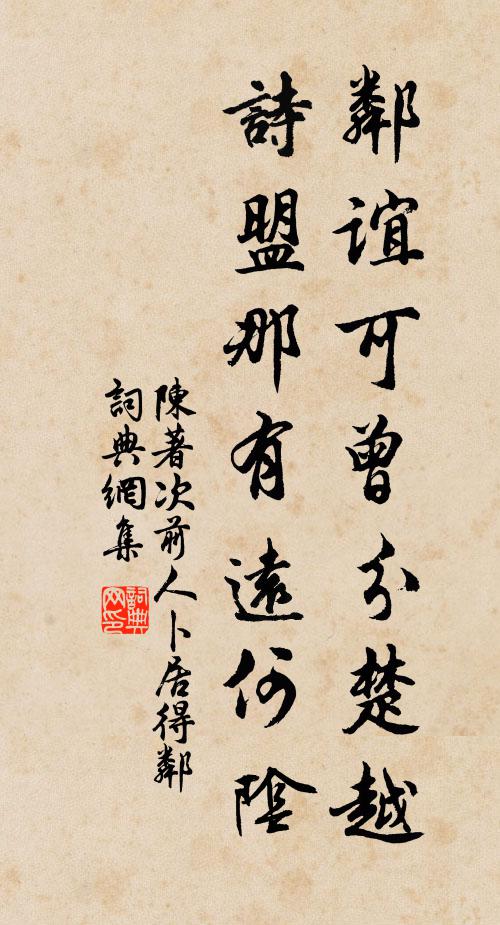 鄰誼可曾分楚越
詩盟那有遠何陰
陳著次前人卜居得鄰
詞典網集
詞典网印